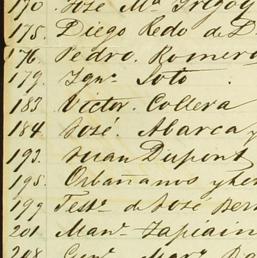 170. José Mª Grigoy
175. Diego Redo de D
176. Pedro Romero
179. Ignº Soto
183. Victor Collera
184. José Abarca y
193. Juan Dupont
195. Orbañanos y her
199 Testª de José Ber
201 Manl Tapiain
208.